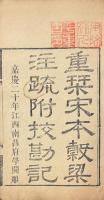 重栞宋本穀梁
注疏附挍勘記
嘉慶二十年江西南昌府學開雕